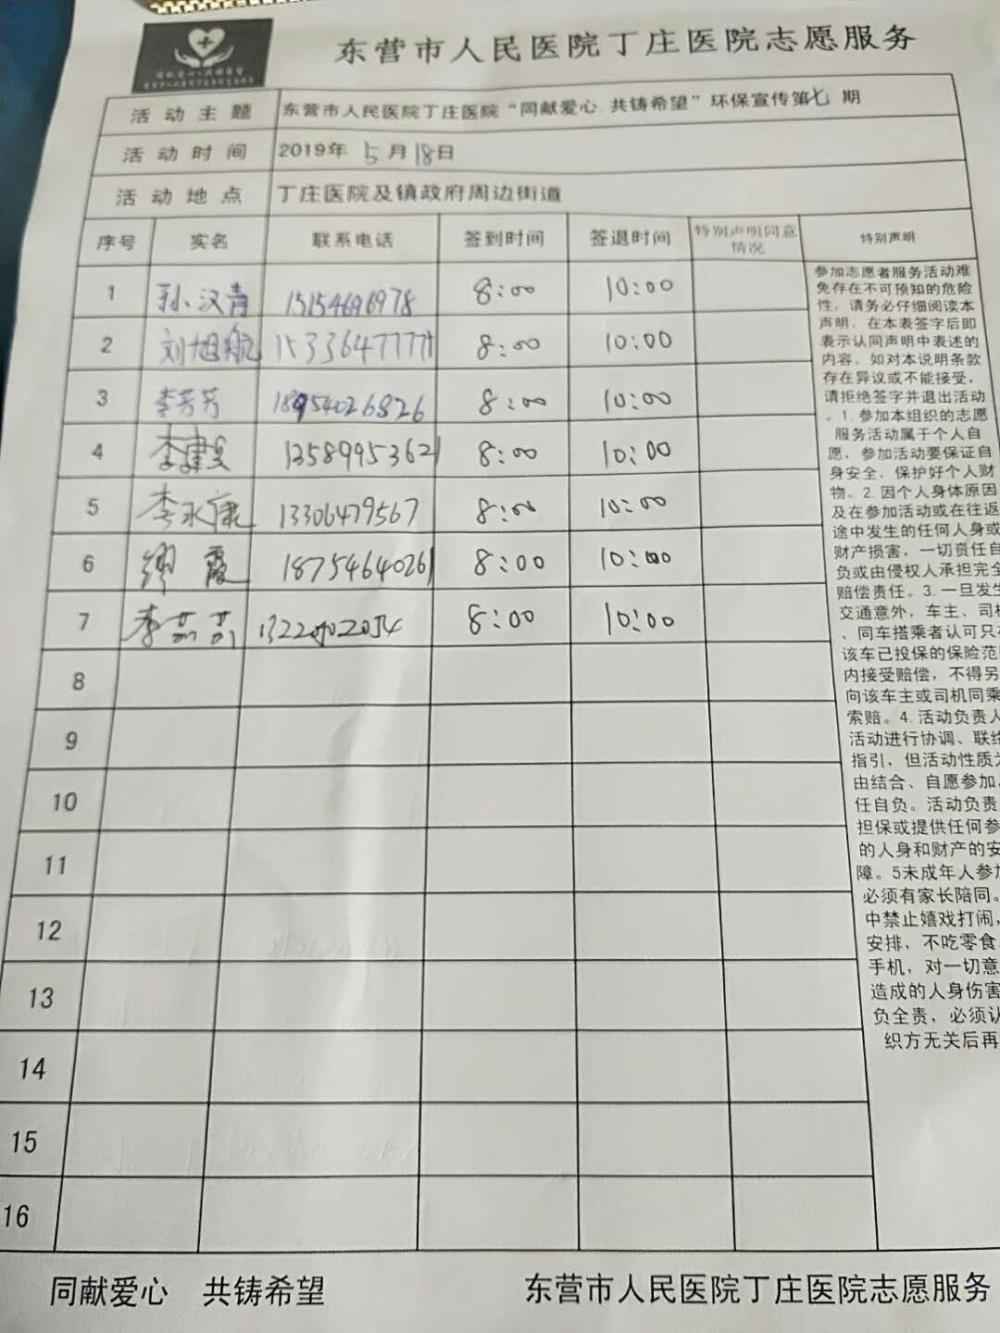 同献爱心·共铸希望
东营市人民医院丁庄医院志愿服务
活动主题 东营市人民医院丁庄医院“同献爱心 共铸希望”环保宣传第七期
活动时间 2019年 5月18日
活动地点 丁庄医院及镇政府周边街道
序号 实名 联系电话 签到时间 签退时间 特别声明同意情况 特别声明
1 孙汉青 15154696978 8:00 10:00
2 刘旭航 8:00 10:00
3 李芳芳 18954026826 8:00 10:00
4 李建 13589953621 8:00 10:00
5 李永康 13306479567 8:00 10:00
6 缪霞 18754640261 8:00 10:00
7 李茹茹 8:00 10:00
8
9
10
11
12
13
14
15
16
参加志愿者服务活动难
免存在不可预知的危险
性，请务必仔细阅读本
声明，在本表签字后即
表示认同声明中表述的
内容。如对本说明条款
存在异议或不能接受，
请拒绝签字并退出活动
。1. 参加本组织的志愿
服务活动属于个人自
愿，参加活动要保证自
身安全，保护好个人财
物。2. 因个人身体原因
及在参加活动或在往返
途中发生的任何人身或
财产损害，一切责任自
负或由侵权人承担完全
赔偿责任。3. 一旦发生
交通意外，车主、司机
、同车搭乘者认可只在
该车已投保的保险范围
内接受赔偿，不得另
向该车主或司机同乘
索赔。4. 活动负责人
活动进行协调、联络
指引，但活动性质为
由结合、自愿参加，
任自负。活动负责
担保或提供任何参
的人身和财产的安
障。5未成年人参加
必须有家长陪同。
中禁止嬉戏打闹，
安排，不吃零食
手机，对一切意
造成的人身伤害
负全责，必须认
织方无关后再
同献爱心 共铸希望
东营市人民医院丁庄医院志愿服务